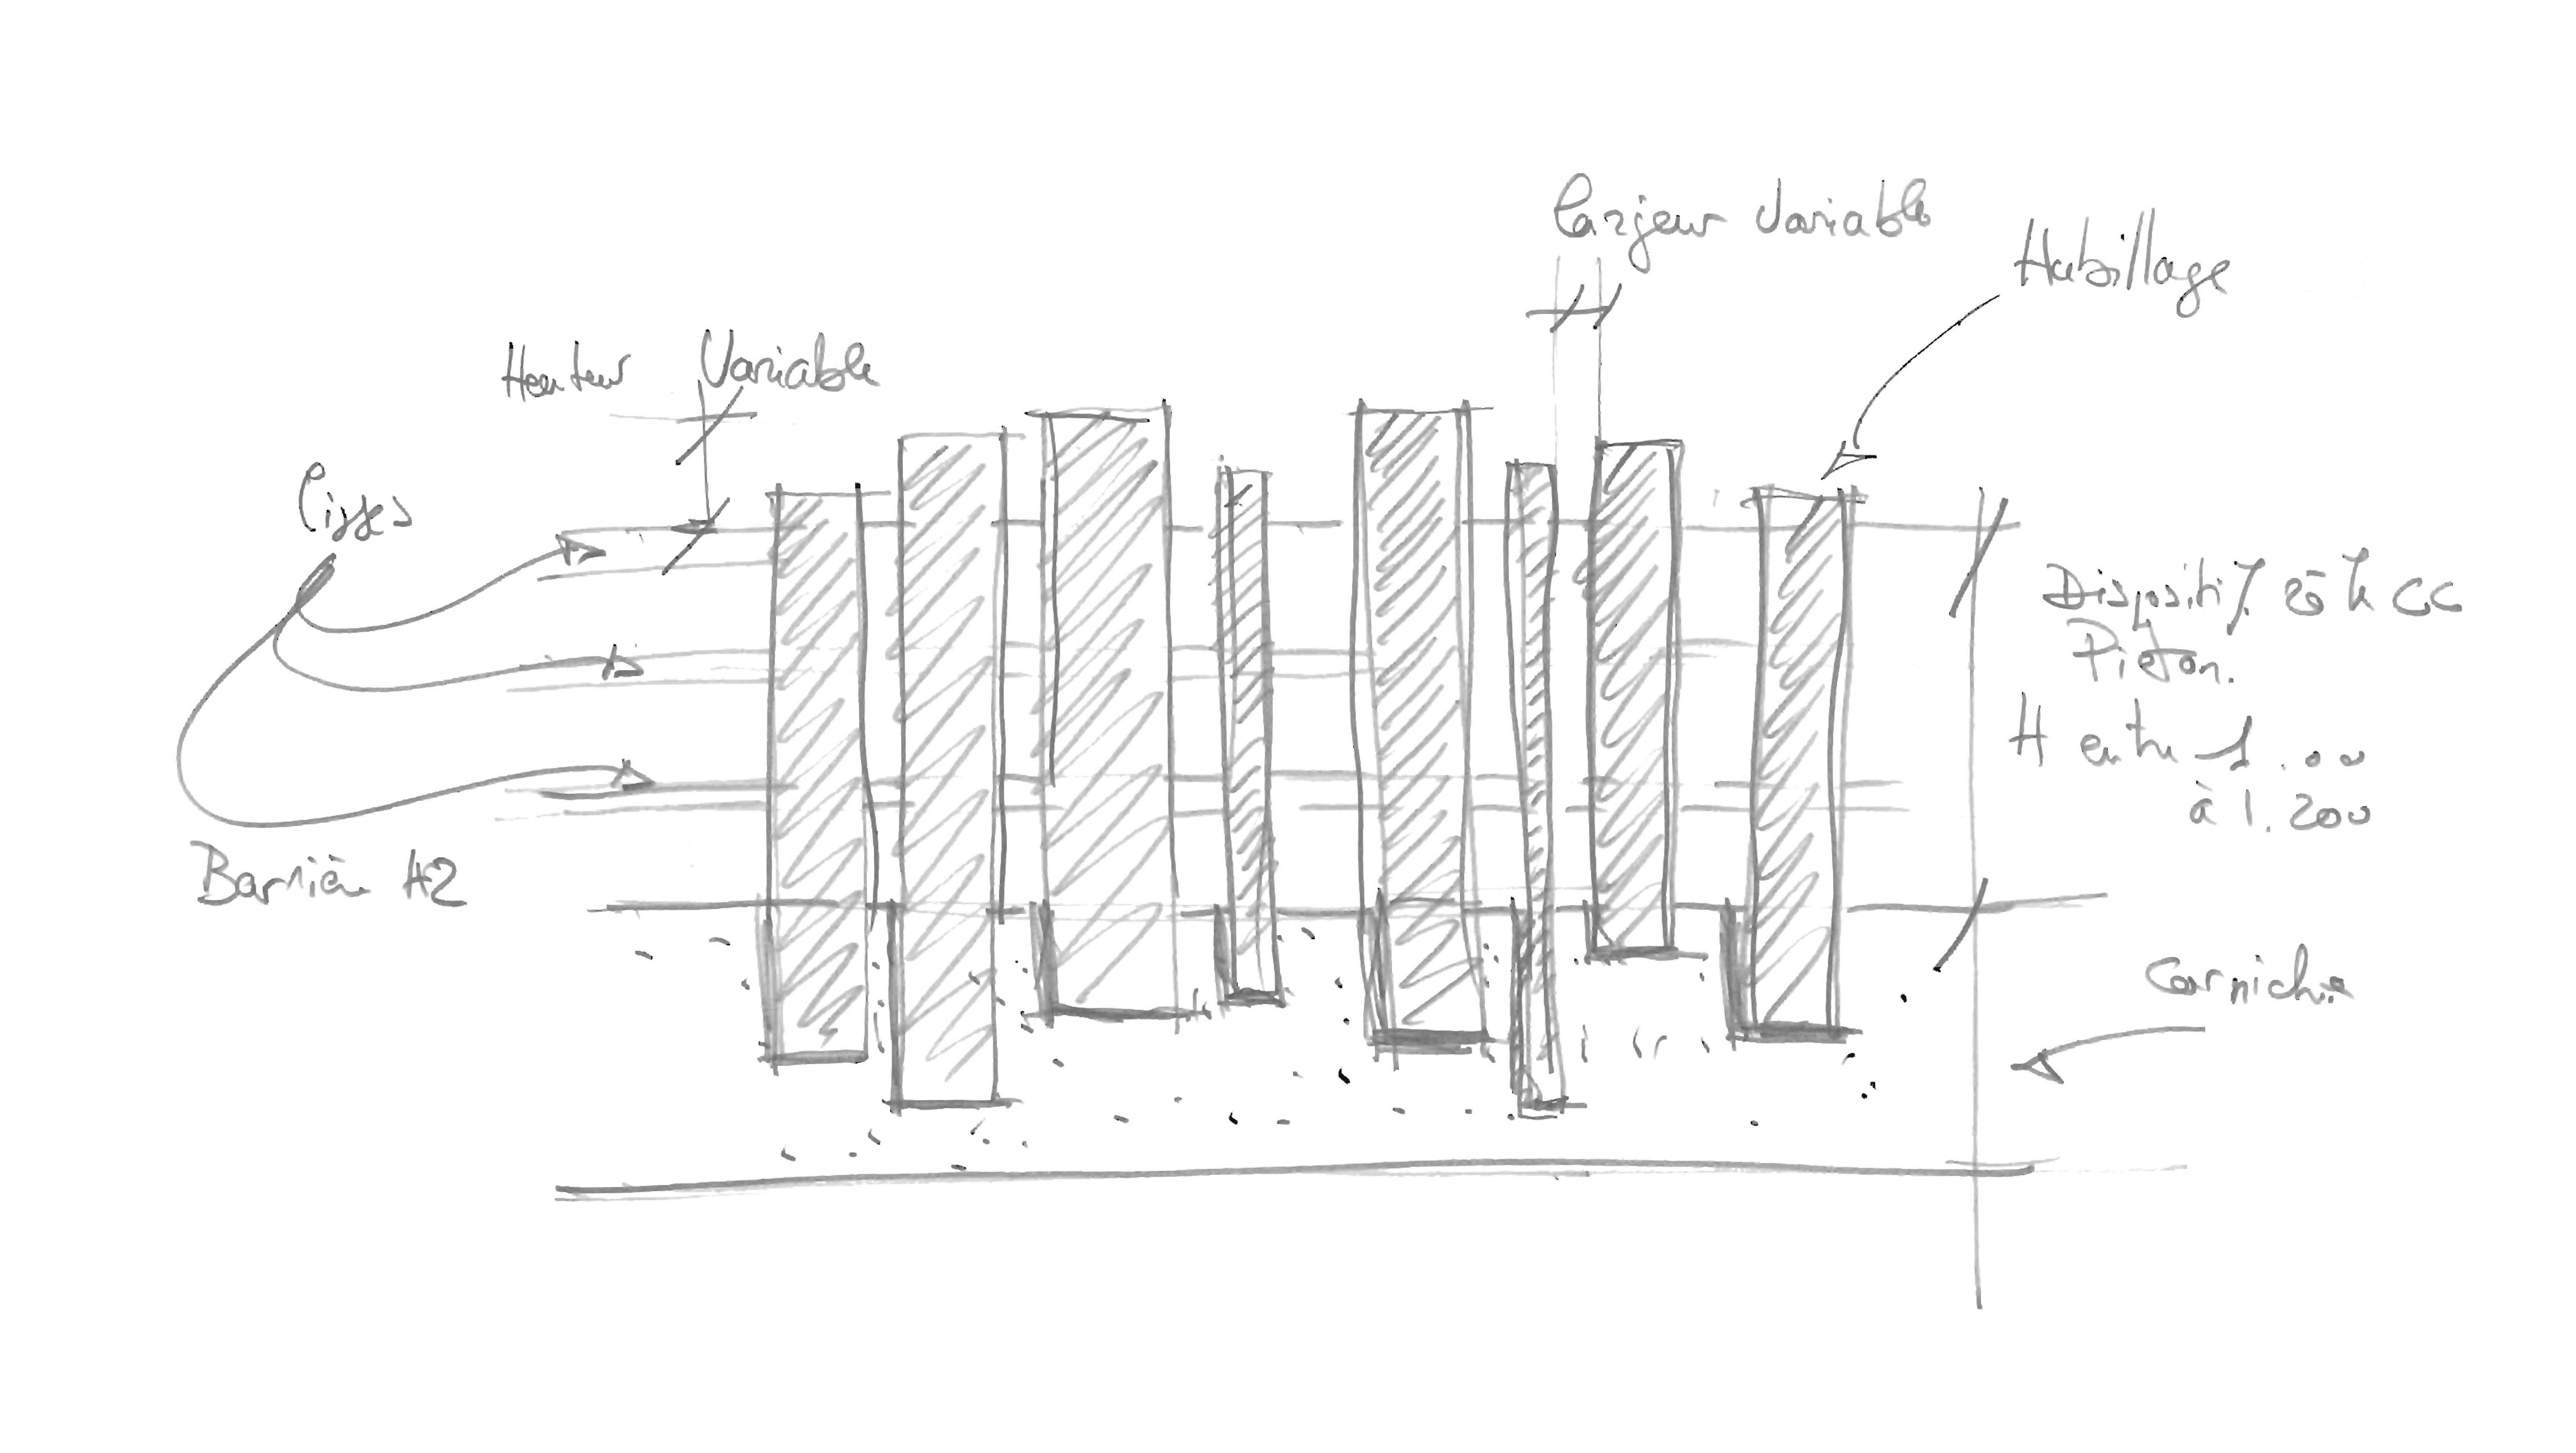 Largeur Variable
Habillage
Hauteur Variable
Lisses
Dispositif
Piéton.
H entre 1.00
à 1.200
Barrière H2
Corniche